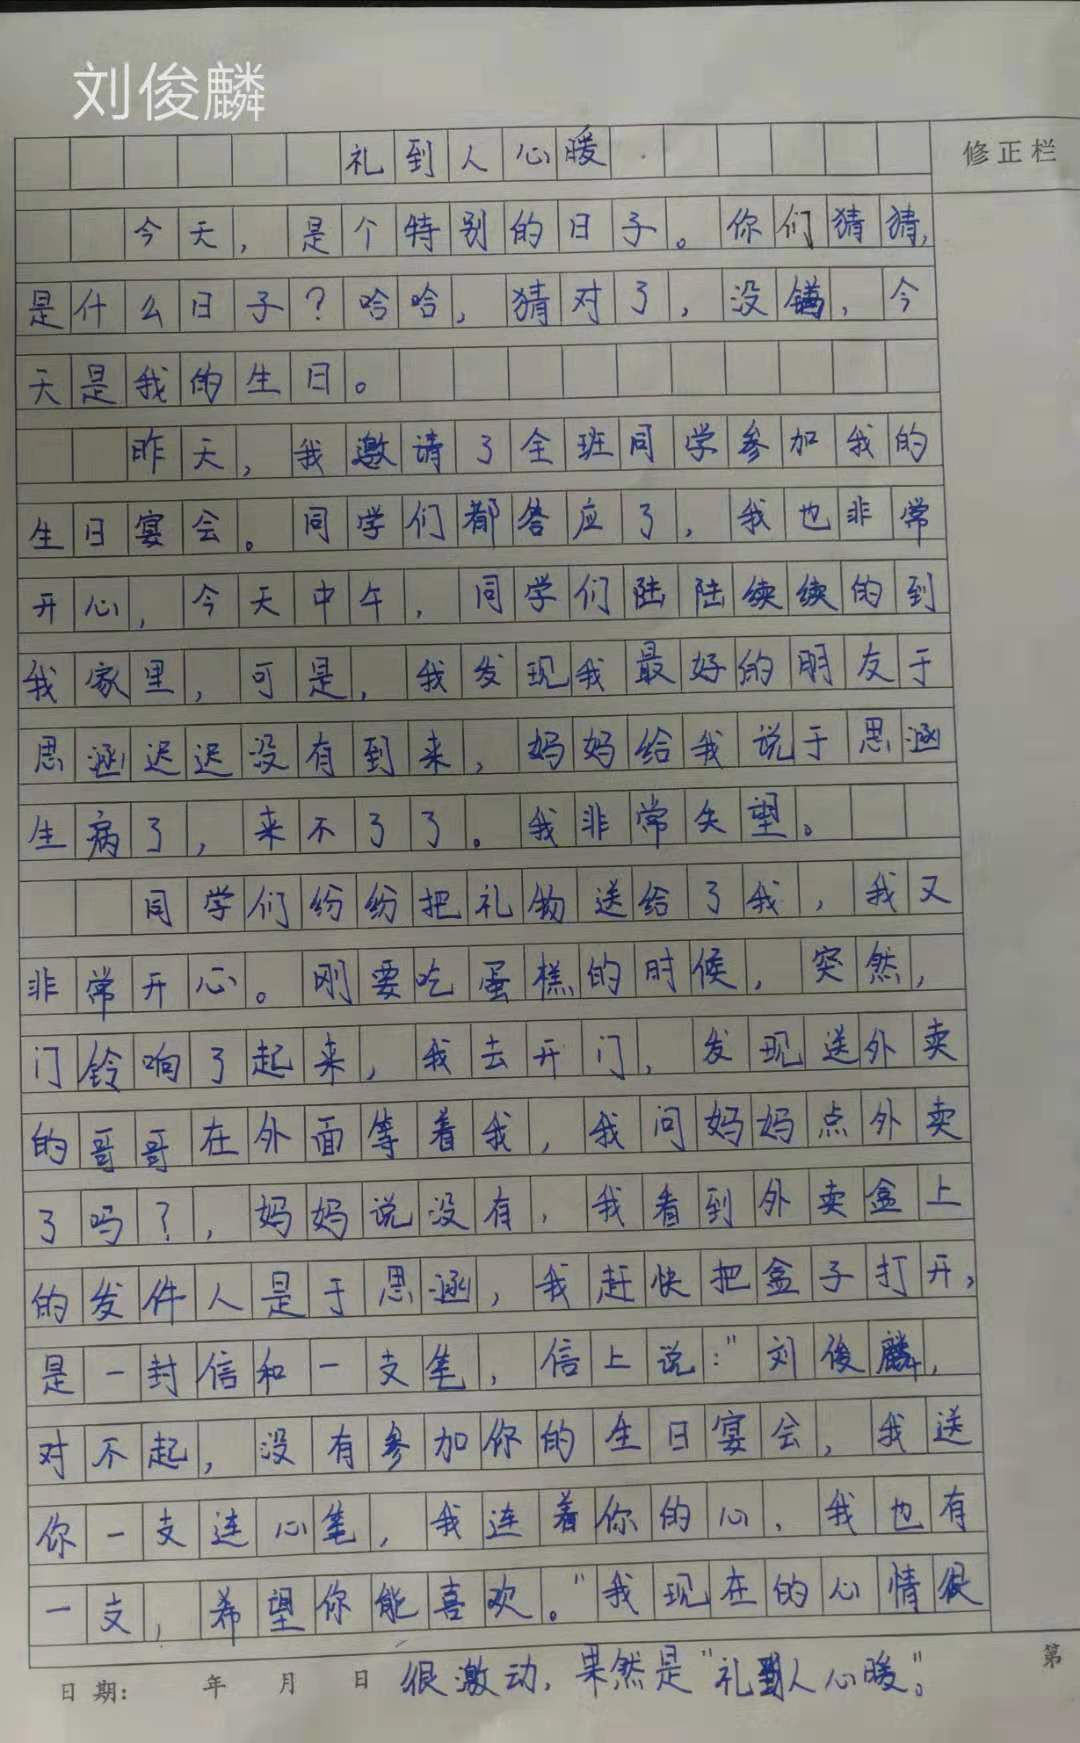 刘俊麟
礼到人心暖
修正栏
今天，是个特别的日子。你们猜猜，
是什么日子？哈哈，猜对了，没错，今
天是我的生日。
昨天，我邀请了全班同学参加我的
生日宴会。同学们都答应了，我也非常
开心，今天中午，同学们陆陆续续的到
我家里，可是，我发现我最好的朋友于
思涵迟迟没有到来，妈妈给我说于思涵
生病了，来不了了。我非常失望。
同学们纷纷把礼物送给了我，我又
非常开心。刚要吃蛋糕的时候，突然，
门铃响了起来，我去开门，发现送外卖
的哥哥在外面等着我，我问妈妈点外卖
了吗？，妈妈说没有，我看到外卖盒上
的发件人是于思涵，我赶快把盒子打开，
是一封信和一支笔，信上说：“刘俊麟，
对不起，没有参加你的生日宴会，我送
你一支连心笔，我连着你的心，我也有
一支，希望你能喜欢。”我现在的心情很
很激动，果然是“礼到人心暖。”
日期： 年 月 日
第